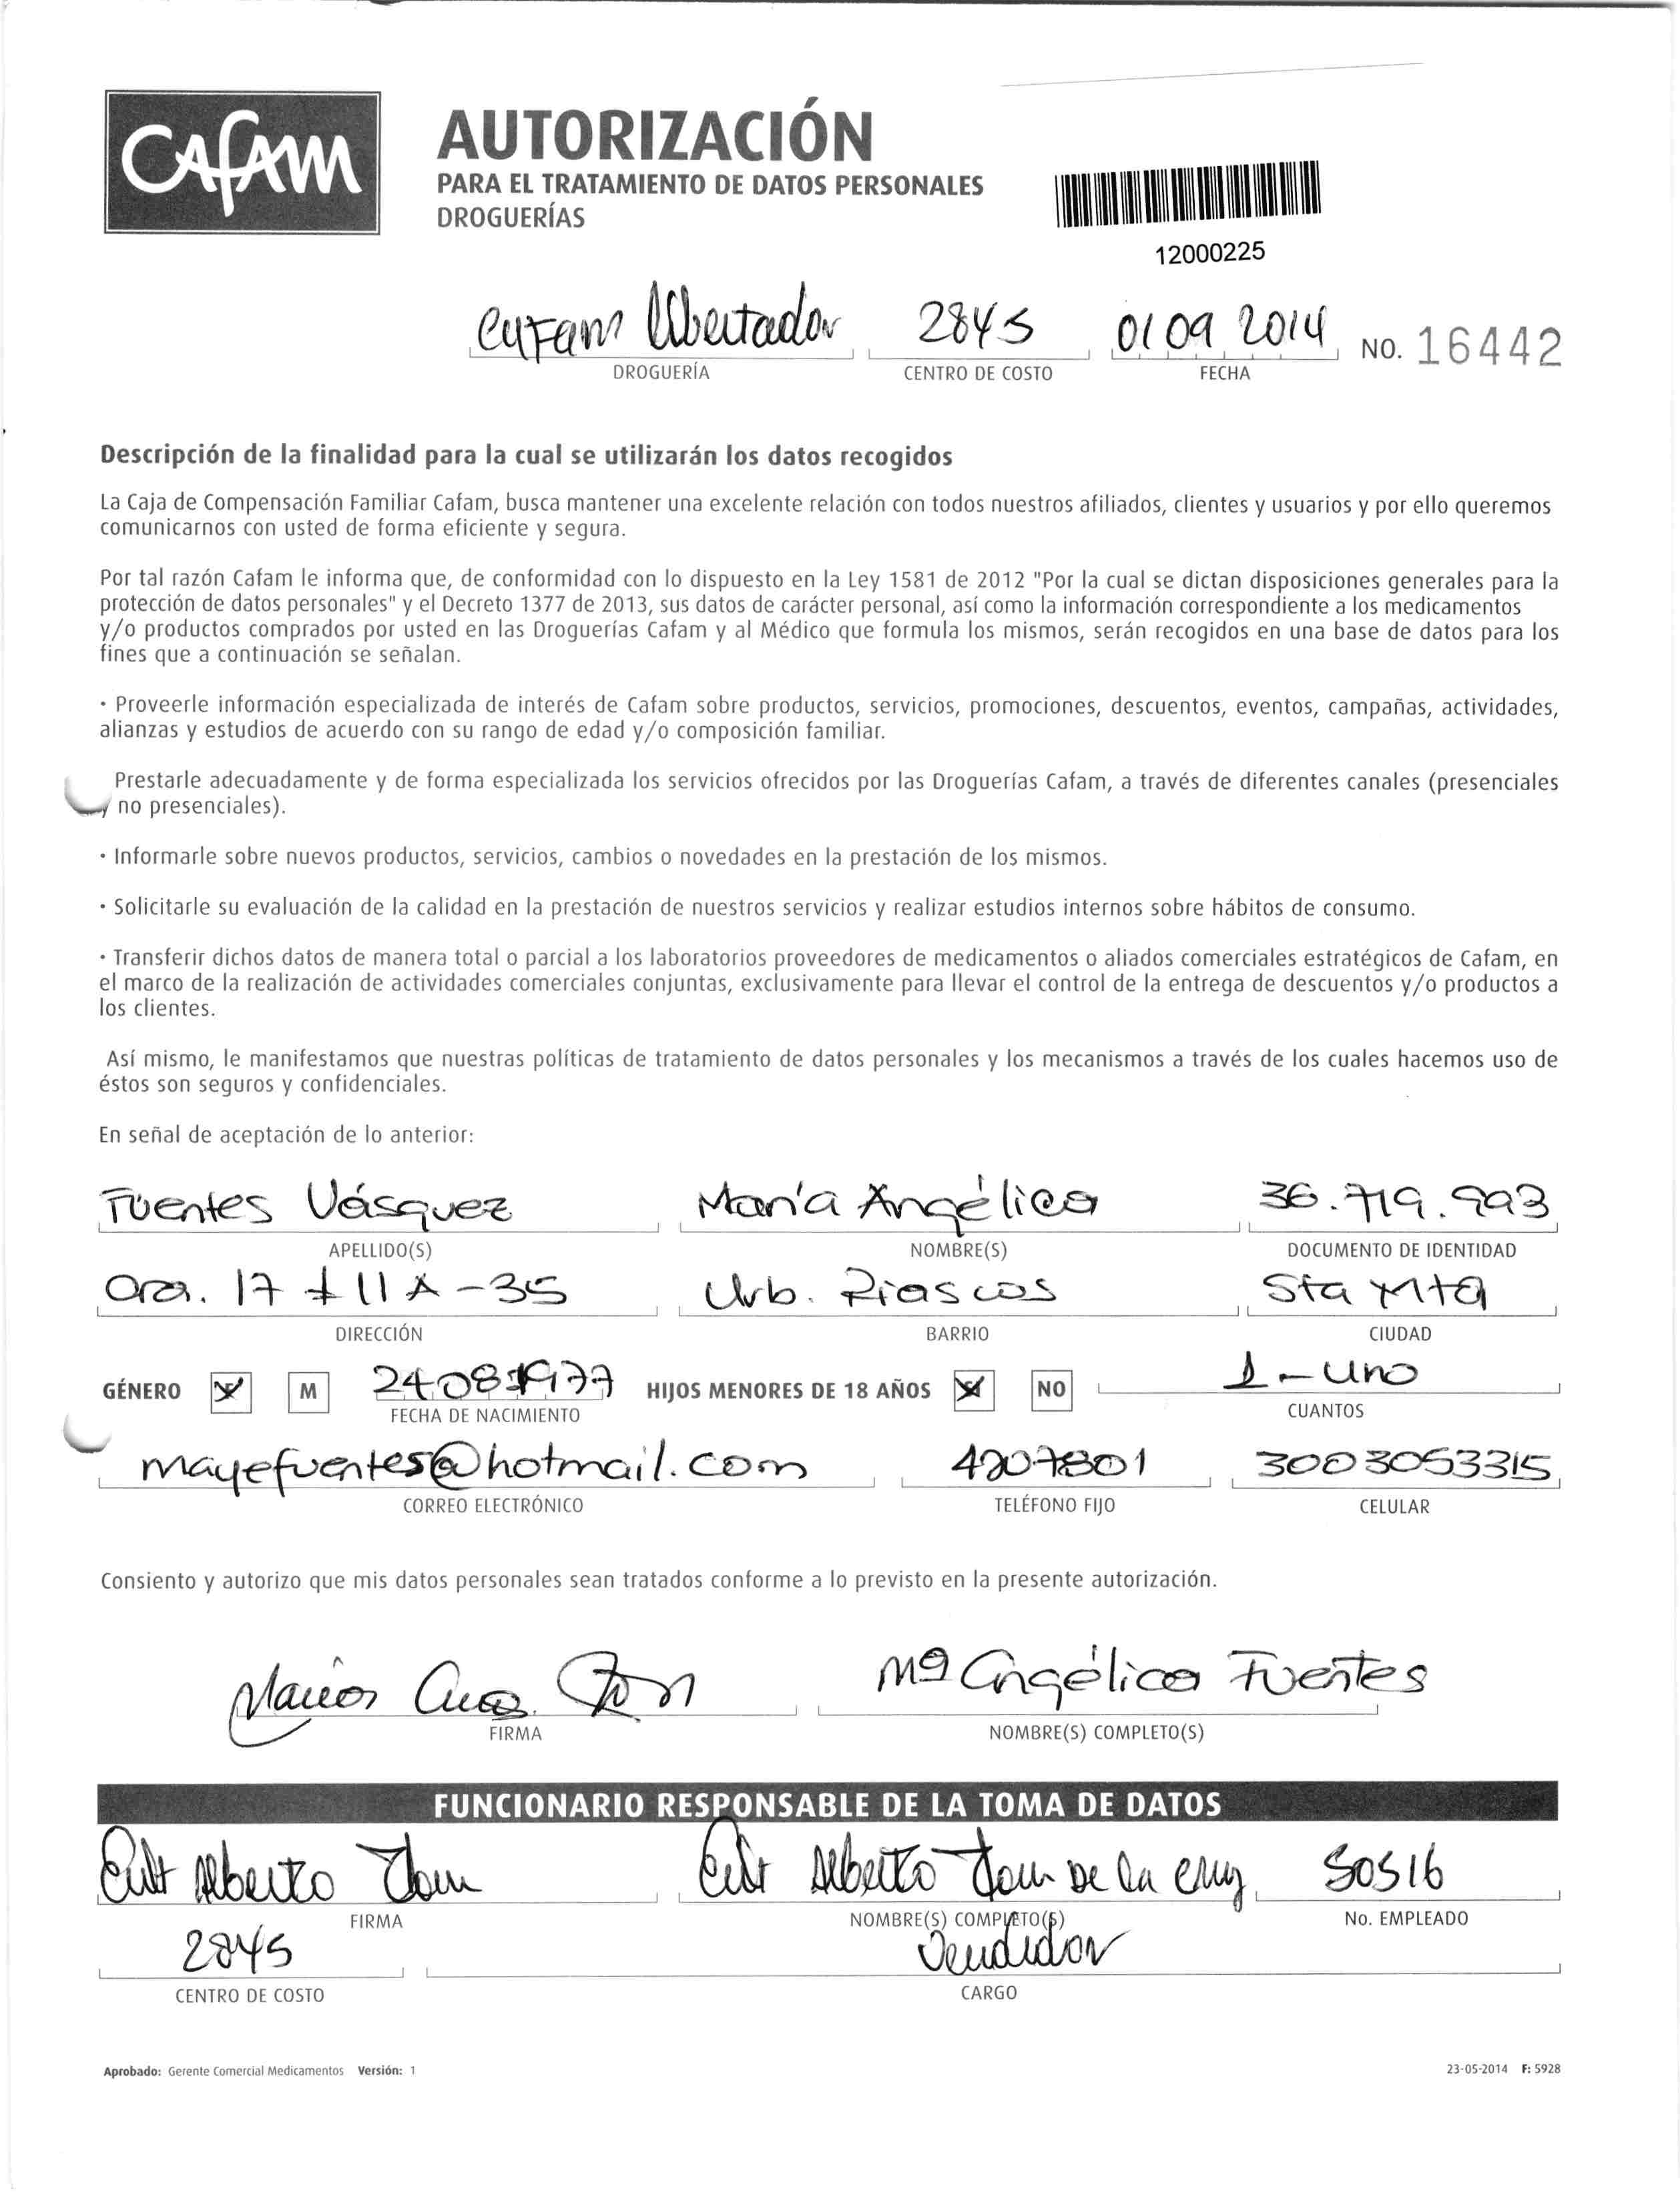 Cafam
AUTORIZACIÓN
PARA EL TRATAMIENTO DE DATOS PERSONALES
DROGUERÍAS
12000225
Cafam Libertador 2845 01 09 2014 NO. 16442
DROGUERÍA CENTRO DE COSTO FECHA
Descripción de la finalidad para la cual se utilizarán los datos recogidos
La Caja de Compensación Familiar Cafam, busca mantener una excelente relación con todos nuestros afiliados, clientes y usuarios y por ello queremos
comunicarnos con usted de forma eficiente y segura.
Por tal razón Cafam le informa que, de conformidad con lo dispuesto en la Ley 1581 de 2012 "Por la cual se dictan disposiciones generales para la
protección de datos personales" y el Decreto 1377 de 2013, sus datos de carácter personal, así como la información correspondiente a los medicamentos
y/o productos comprados por usted en las Droguerías Cafam y al Médico que formula los mismos, serán recogidos en una base de datos para los
fines que a continuación se señalan.
· Proveerle información especializada de interés de Cafam sobre productos, servicios, promociones, descuentos, eventos, campañas, actividades,
alianzas y estudios de acuerdo con su rango de edad y/o composición familiar.
Prestarle adecuadamente y de forma especializada los servicios ofrecidos por las Droguerías Cafam, a través de diferentes canales (presenciales
y no presenciales).
· Informarle sobre nuevos productos, servicios, cambios o novedades en la prestación de los mismos.
· Solicitarle su evaluación de la calidad en la prestación de nuestros servicios y realizar estudios internos sobre hábitos de consumo.
· Transferir dichos datos de manera total o parcial a los laboratorios proveedores de medicamentos o aliados comerciales estratégicos de Cafam, en
el marco de la realización de actividades comerciales conjuntas, exclusivamente para llevar el control de la entrega de descuentos y/o productos a
los clientes.
Así mismo, le manifestamos que nuestras políticas de tratamiento de datos personales y los mecanismos a través de los cuales hacemos uso de
éstos son seguros y confidenciales.
En señal de aceptación de lo anterior:
Fuentes Vásquez María Angélica 36.719.993
APELLIDO(S) NOMBRE(S) DOCUMENTO DE IDENTIDAD
Cra. 17 # 11 A - 35 Urb. Riascos Sta Mta
DIRECCIÓN BARRIO CIUDAD
GÉNERO F M 24081977 HIJOS MENORES DE 18 AÑOS SI NO 1 - uno
FECHA DE NACIMIENTO CUANTOS
mayefuentes@hotmail.com 4207801 3003053315
CORREO ELECTRÓNICO TELÉFONO FIJO CELULAR
Consiento y autorizo que mis datos personales sean tratados conforme a lo previsto en la presente autorización.
Mª Angélica Fuentes
FIRMA NOMBRE(S) COMPLETO(S)
FUNCIONARIO RESPONSABLE DE LA TOMA DE DATOS
Alberto Alberto De la Cruz 50516
FIRMA NOMBRE(S) COMPLETO(S) No. EMPLEADO
2845 Vendedor
CENTRO DE COSTO CARGO
Aprobado: Gerente Comercial Medicamentos Versión: 1 23-05-2014 F: 5928